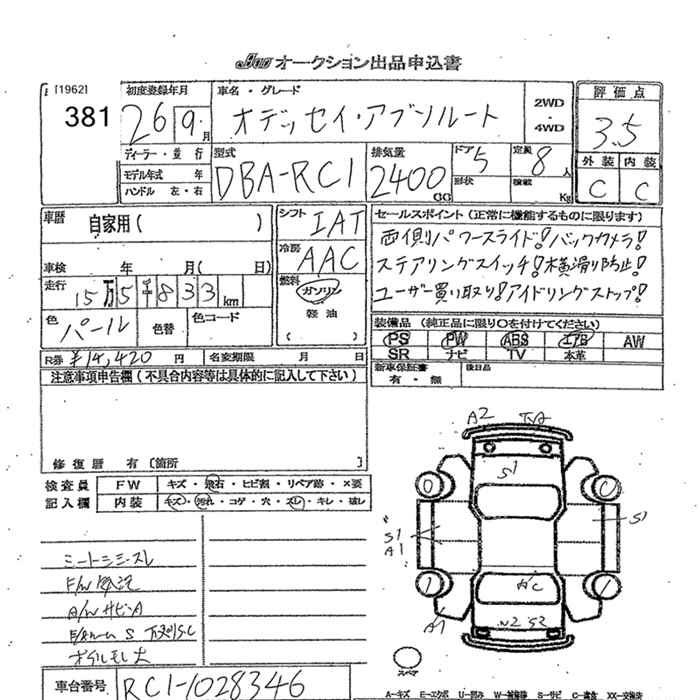 JU オークション出品申込書
[1962]
381
初度登録年月
26 9月
車名・グレード
オデッセイ・アブソルート
2WD・4WD
評価点
3.5
外装 内装
C C
ディーラー・並行
モデル年式 年
ハンドル 左・右
型式
DBA-RC1
排気量
2400 CC
ドア 5
形状
定員 8人
積載 Kg
車歴
自家用( )
車検 年 月( 日)
走行
15万5千833km
色
パール
色替
色コード
シフト IAT
冷房 AAC
燃料
ガソリン
軽油
( )
セールスポイント(正常に機能するものに限ります)
両側パワースライド!バックカメラ!
ステアリングスイッチ!横滑り防止!
ユーザー買い取り!アイドリングストップ!
装備品(純正品に限り○を付けてください)
PS PW ABS エアB AW
SR ナビ TV 本革
新車保証書
有・無
後日品
R券 ¥14,420円 名変期限 月 日
注意事項申告欄(不具合内容等は具体的に記入して下さい)
修復歴 有〔箇所 〕
検査員
記入欄
FW キズ・飛石・ヒビ割・リペア跡・×要
内装 キズ・汚れ・コゲ・穴・スレ・キレ・破レ
A2
S1
S1
A1
S1
A1
AC
スペア
シートシミ・スレ
A/W サビ・A
オイルモレ大
車台番号
RC1-1028346
A-キズ E-エクボ U-凹み W-補修跡 S-サビ C-腐食 XX-交換済